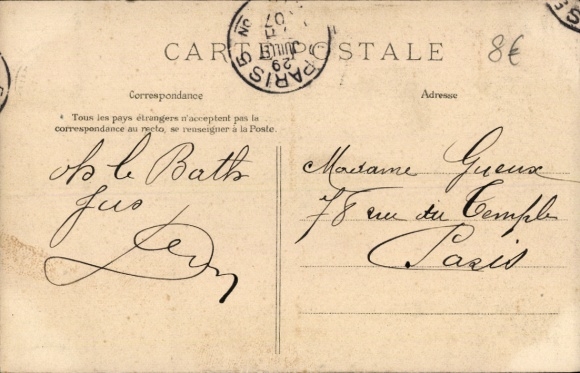 CARTE POSTALE
8€
PARIS
29
JUIL
07
Correspondance
Adresse
* Tous les pays étrangers n'acceptent pas la
correspondance au recto, se renseigner à la Poste.
le
Madame Gueux
78 rue du Temple
Paris